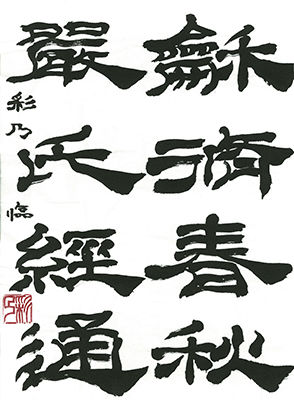 龢脩春秋
嚴氏經通
彩乃臨